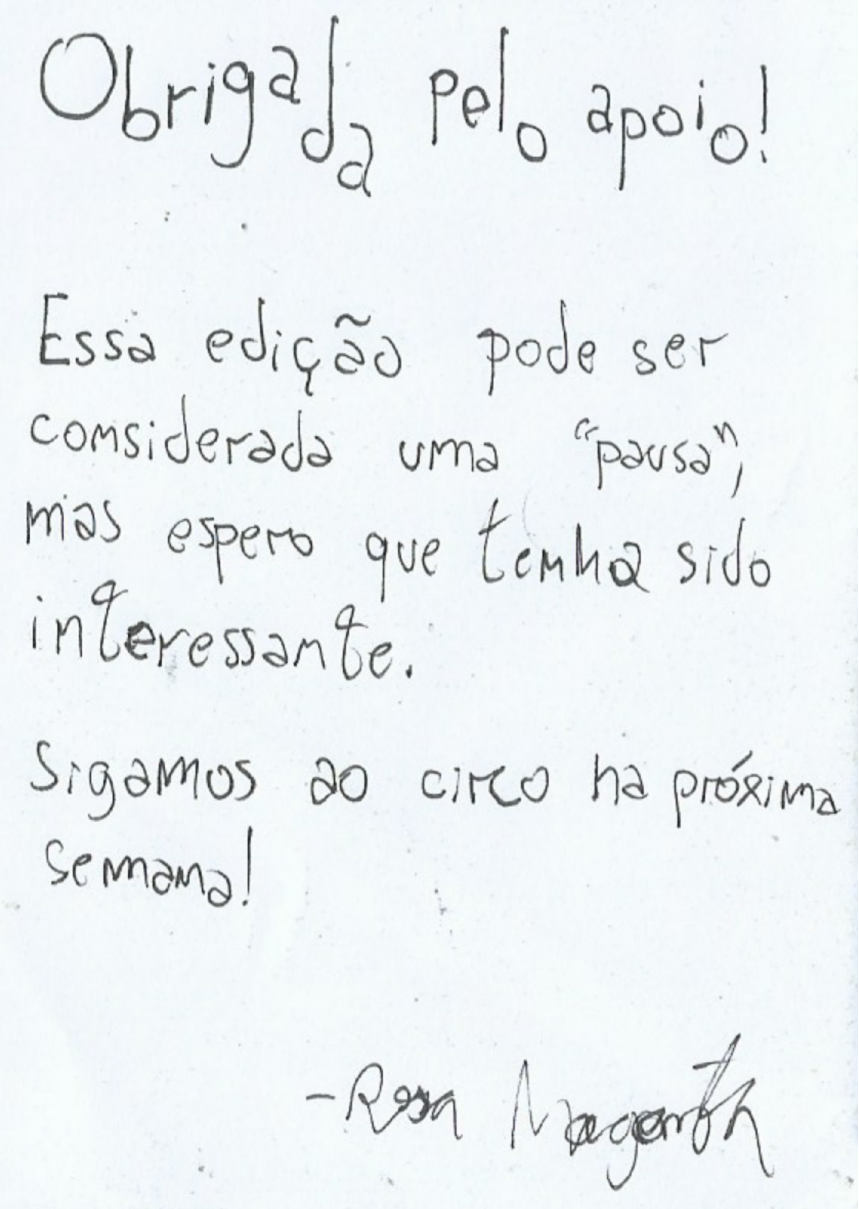 Obrigada pelo apoio!
Essa edição pode ser
considerada uma "pausa",
mas espero que tenha sido
interessante.
Sigamos ao circo na próxima
semana!
-Rosa